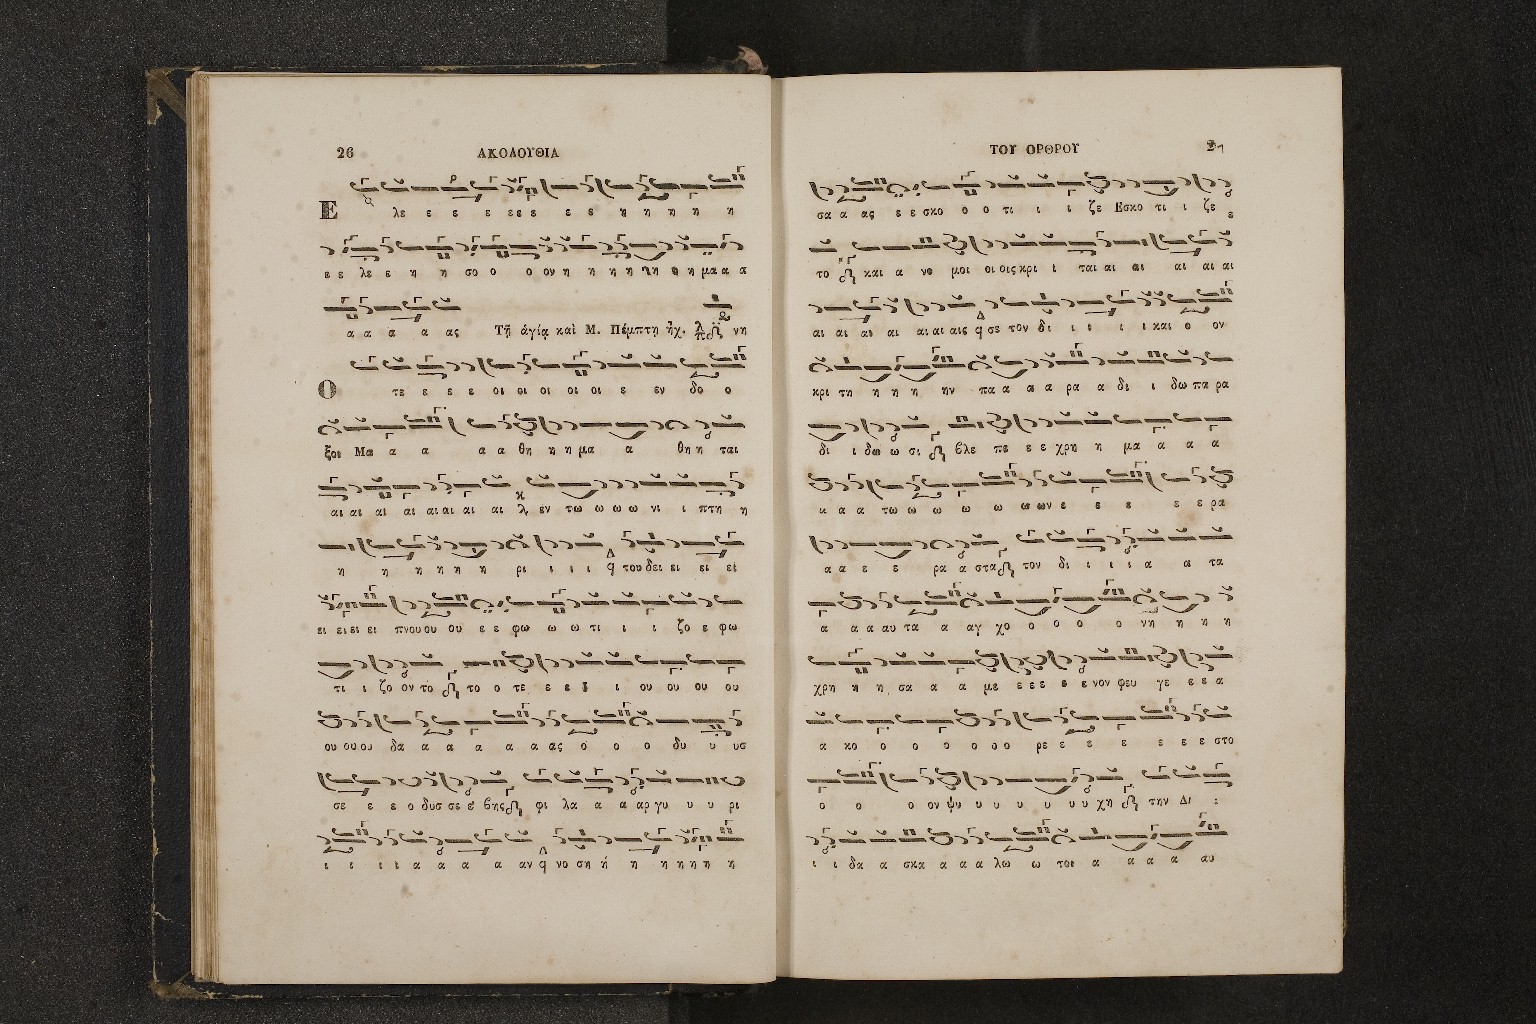 26
ΑΚΟΛΟΥΘΙΑ
Ε λε ε ε ε ε εε ε ε ε η η η η η
ε ε λε ε η η σο ο ο ον η η η η η η μα α α
α α α α ας Τῇ ἁγίᾳ καὶ Μ. Πέμπτῃ ἦχ. νη
Ο τε ε ε ε οι οι οι οι οι ε εν δο ο
ξοι Μα α α α α θη η η μα α θη η ται
αι αι αι αι αι αι αι αι αι εν τω ω ω ω νι ι πτη η
η η η η η η ρι ι ι ι του δει ει ει ει
ει ει ει ει πνου ου ου ε ε φω ω ω τι ι ι ζο ε φω
τι ι ζο ον το το ο τε ε ε ι ι ου ου ου ου
ου ου ου δα α α α α α ας ο ο ο δυ υ υσ
σε ε ε ο δυσ σε ε βης φι λα α α αρ γυ υ υ ρι
ι ι ι ι α α α α αν νο ση η η η η η η
ΤΟΥ ΟΡΘΡΟΥ
27
σα α ας ε ε σκο ο ο τι ι ι ζε Εσκο τι ι ζε ε
το και α νο μοι οι οις κρι ι ται αι αι αι αι αι
αι αι αι αι αι αι αις σε τον δι ι ι ι ι και ο ον
κρι τη η η η ην πα α α α ρα α δι ι δω πα ρα
δι ι δω ω σι βλε πε ε ε χρη η μα α α α
α α α τω ω ω ω ω ω ων ε ε ε ε ε ρα
α α ε ε ρα α στα τον δι ι ι ι α α τα
α α α αυ τα α αγ χο ο ο ο ο νη η η η
χρη η η σα α α με ε ε ε ε ε νον φευ γε ε ε α
α κο ο ο ο ο ο ο ρε ε ε ε ε ε ε στο
ο ο ο ον ψυ υ υ υ υ υ υ χη την Δι
ι ι δα α σκα α α α λω ω τοι α α α α αυ